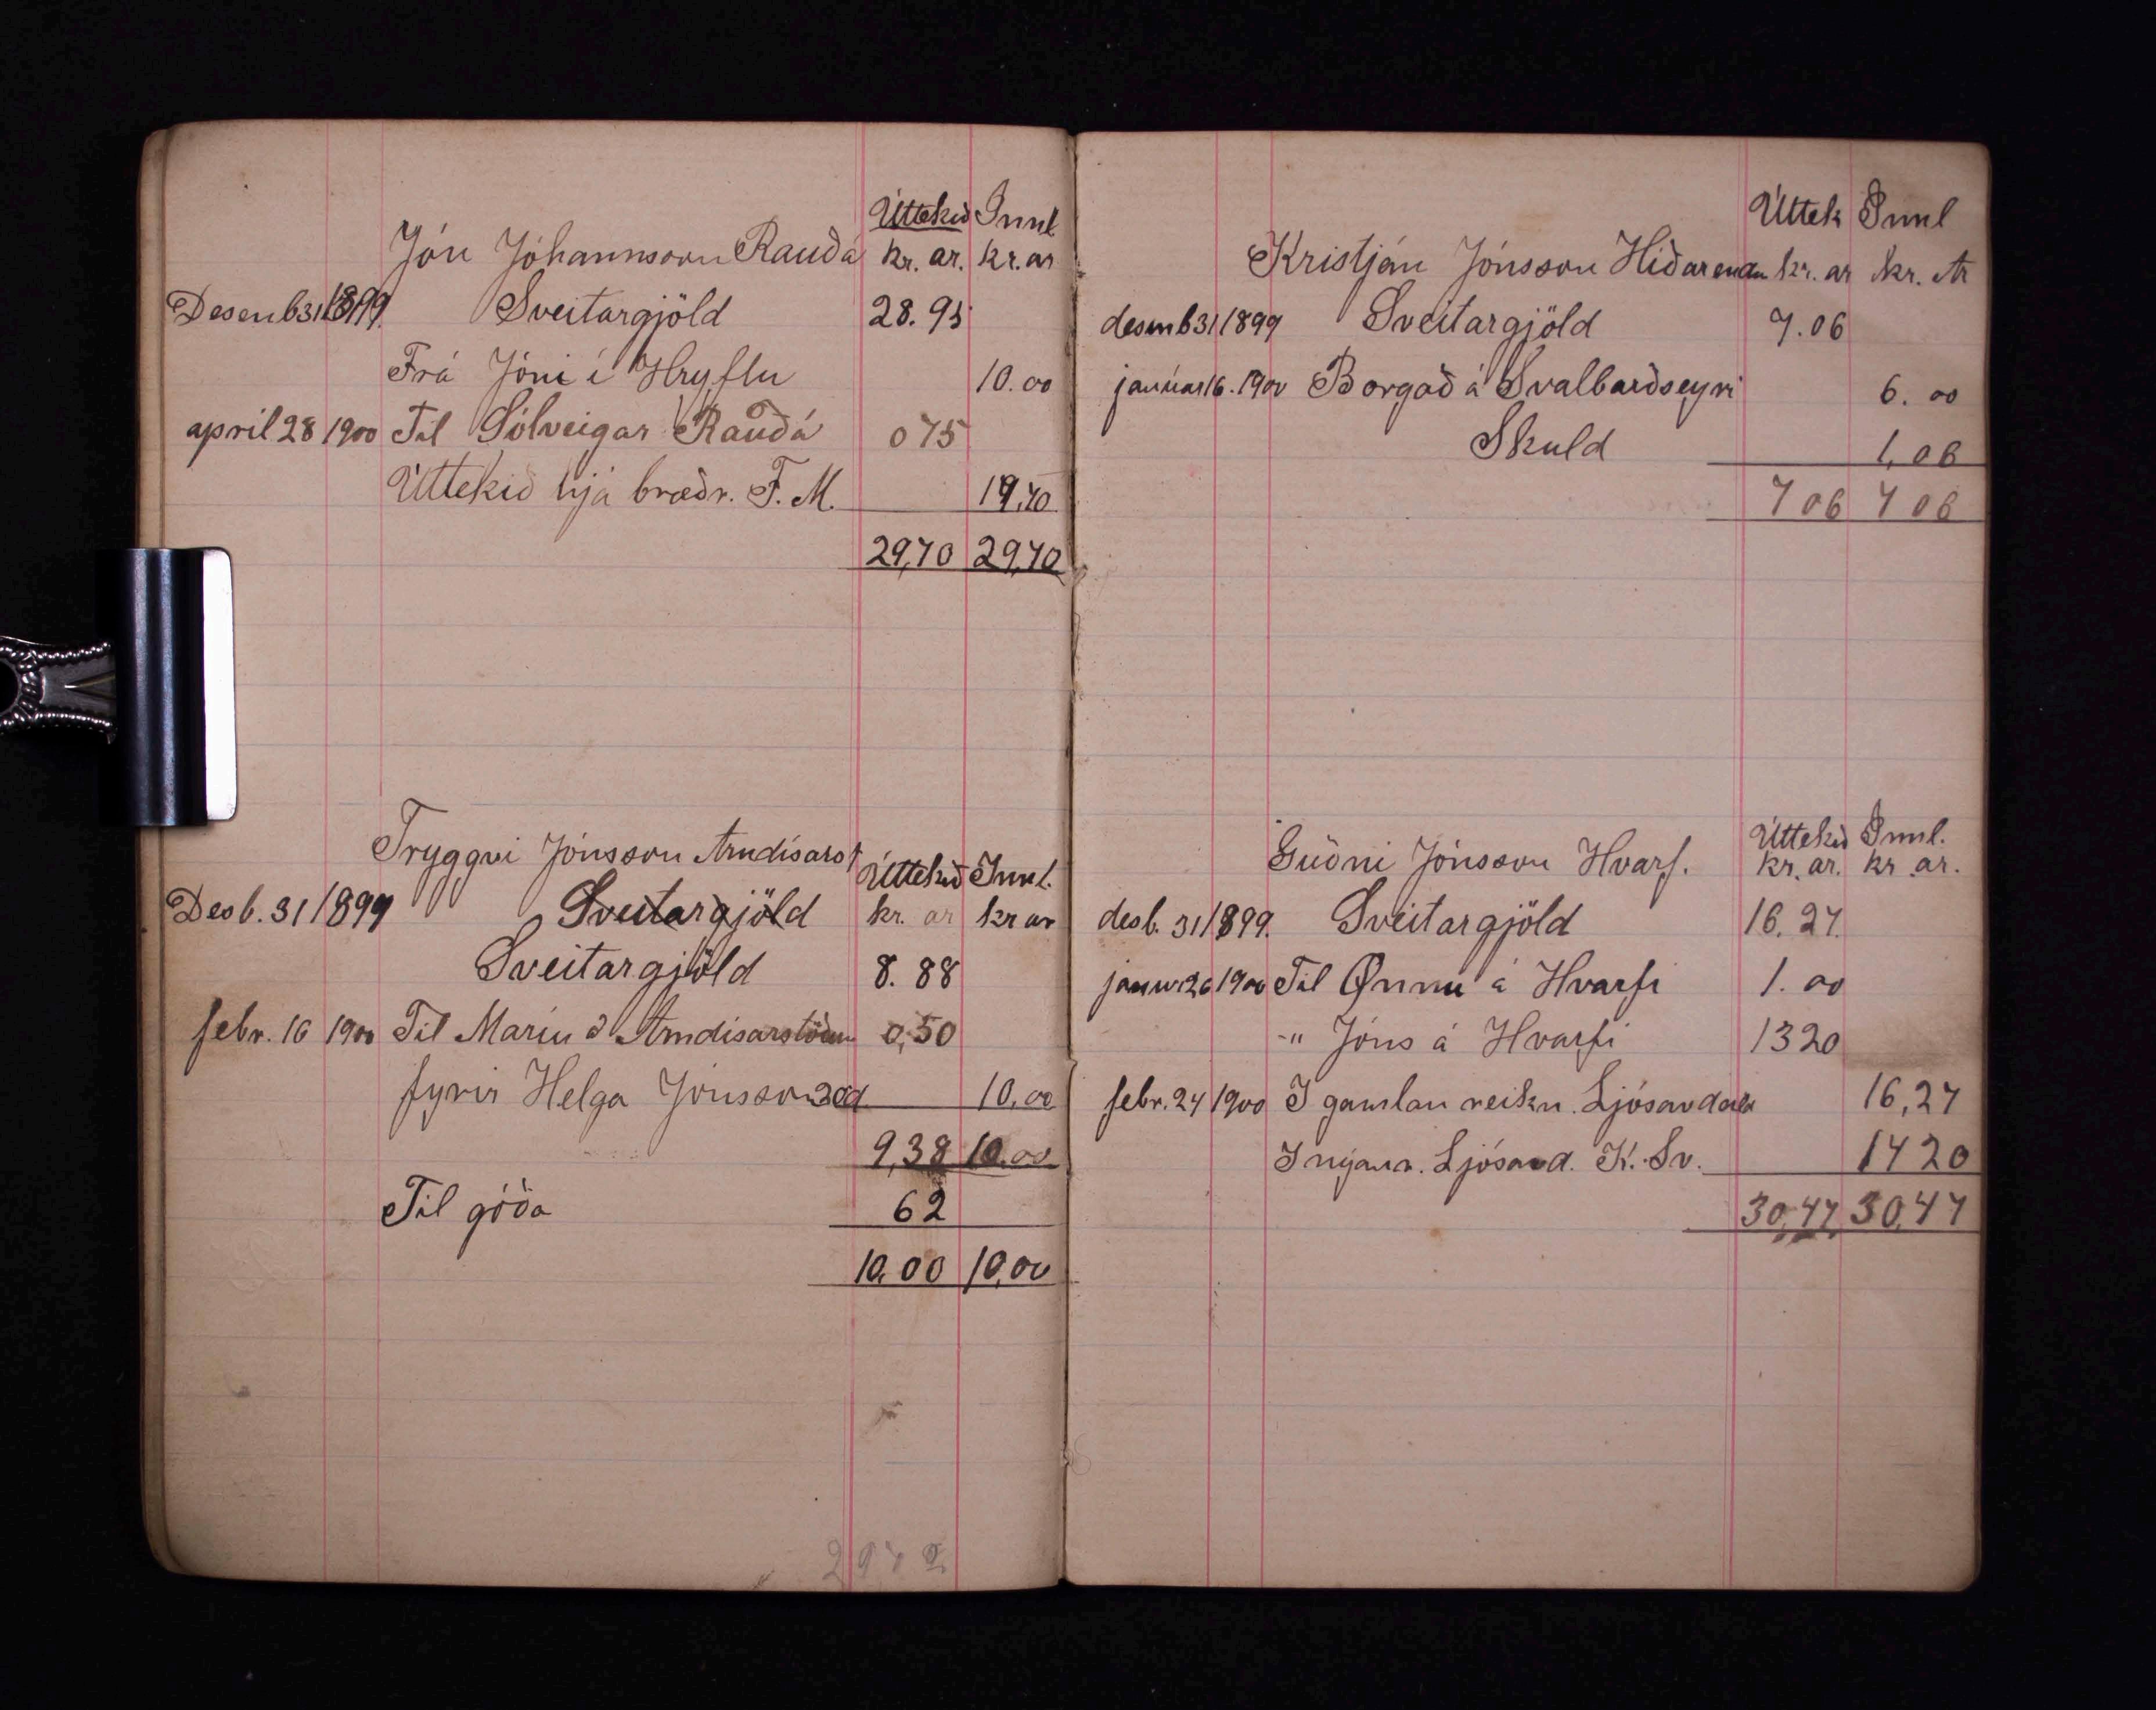 Úttekið Innl
Jón Jóhannsson Rauðá kr. ar. kr. ar
Desemb 31 1899 Sveitargjöld 28.95
Frá Jóni í Hryflu 10.00
april 28 1900 Til Sólveigar Rauðá 0 75
Úttekið hjá brœdr. F. M. 19,70
29,70 29,70
Tryggvi Jónsson Arndísarst
Úttekið Innl.
Desb. 31 1899 Sveitargjöld kr. ar kr ar
Sveitargjöld 8. 88
febr. 16 1900 Til Maríu á Arndísarstöðum 0,50
fyrir Helga Jónsson 10,00
9,38 10.00
Til góða 62
10,00 10,00
Úttek Innl
Kristján Jónsson Hlíðarenda kr. ar kr. Ar
desemb 31 1899 Sveitargjöld 7.06
janúar 16. 1900 Borgað á Svalbarðseyri 6. 00
Skuld 1,06
7 06 7 06
Úttekið Innl.
Guðni Jónsson Hvarf. kr. ar. kr. ar.
desb. 31 1899. Sveitargjöld 16. 27.
janur 26 1900 Til Önnu á Hvarfi 1. 00
-" Jóns á Hvarfi 13 20
febr. 24 1900 I gamlan reikn. Ljósavdals 16,27
I nýjan r. Ljósavd. K. Sv. 14 20
30,47 30,47
297